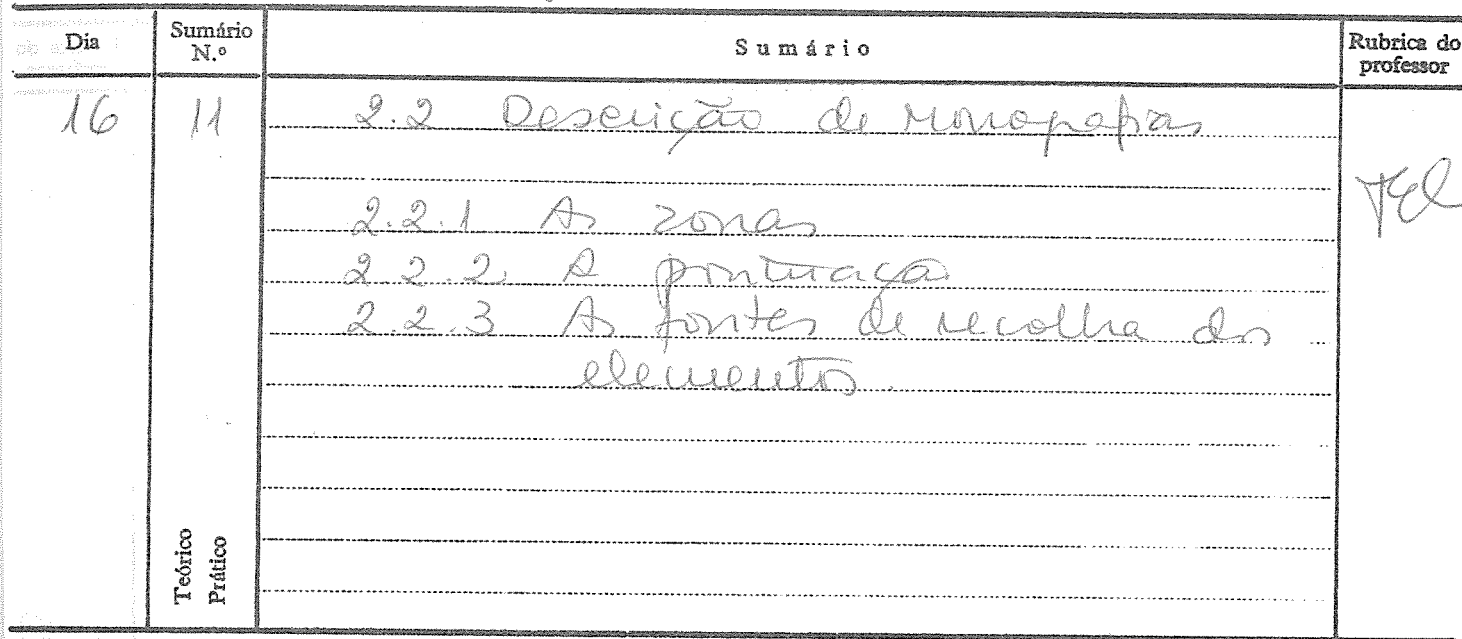 Dia
Sumário N.º
Sumário
Rubrica do professor
16
11
2.2 Descrição de monografias
2.2.1 As zonas
2.2.2. A pontuação
2.2.3 As fontes de recolha dos
elementos.
Teórico
Prático